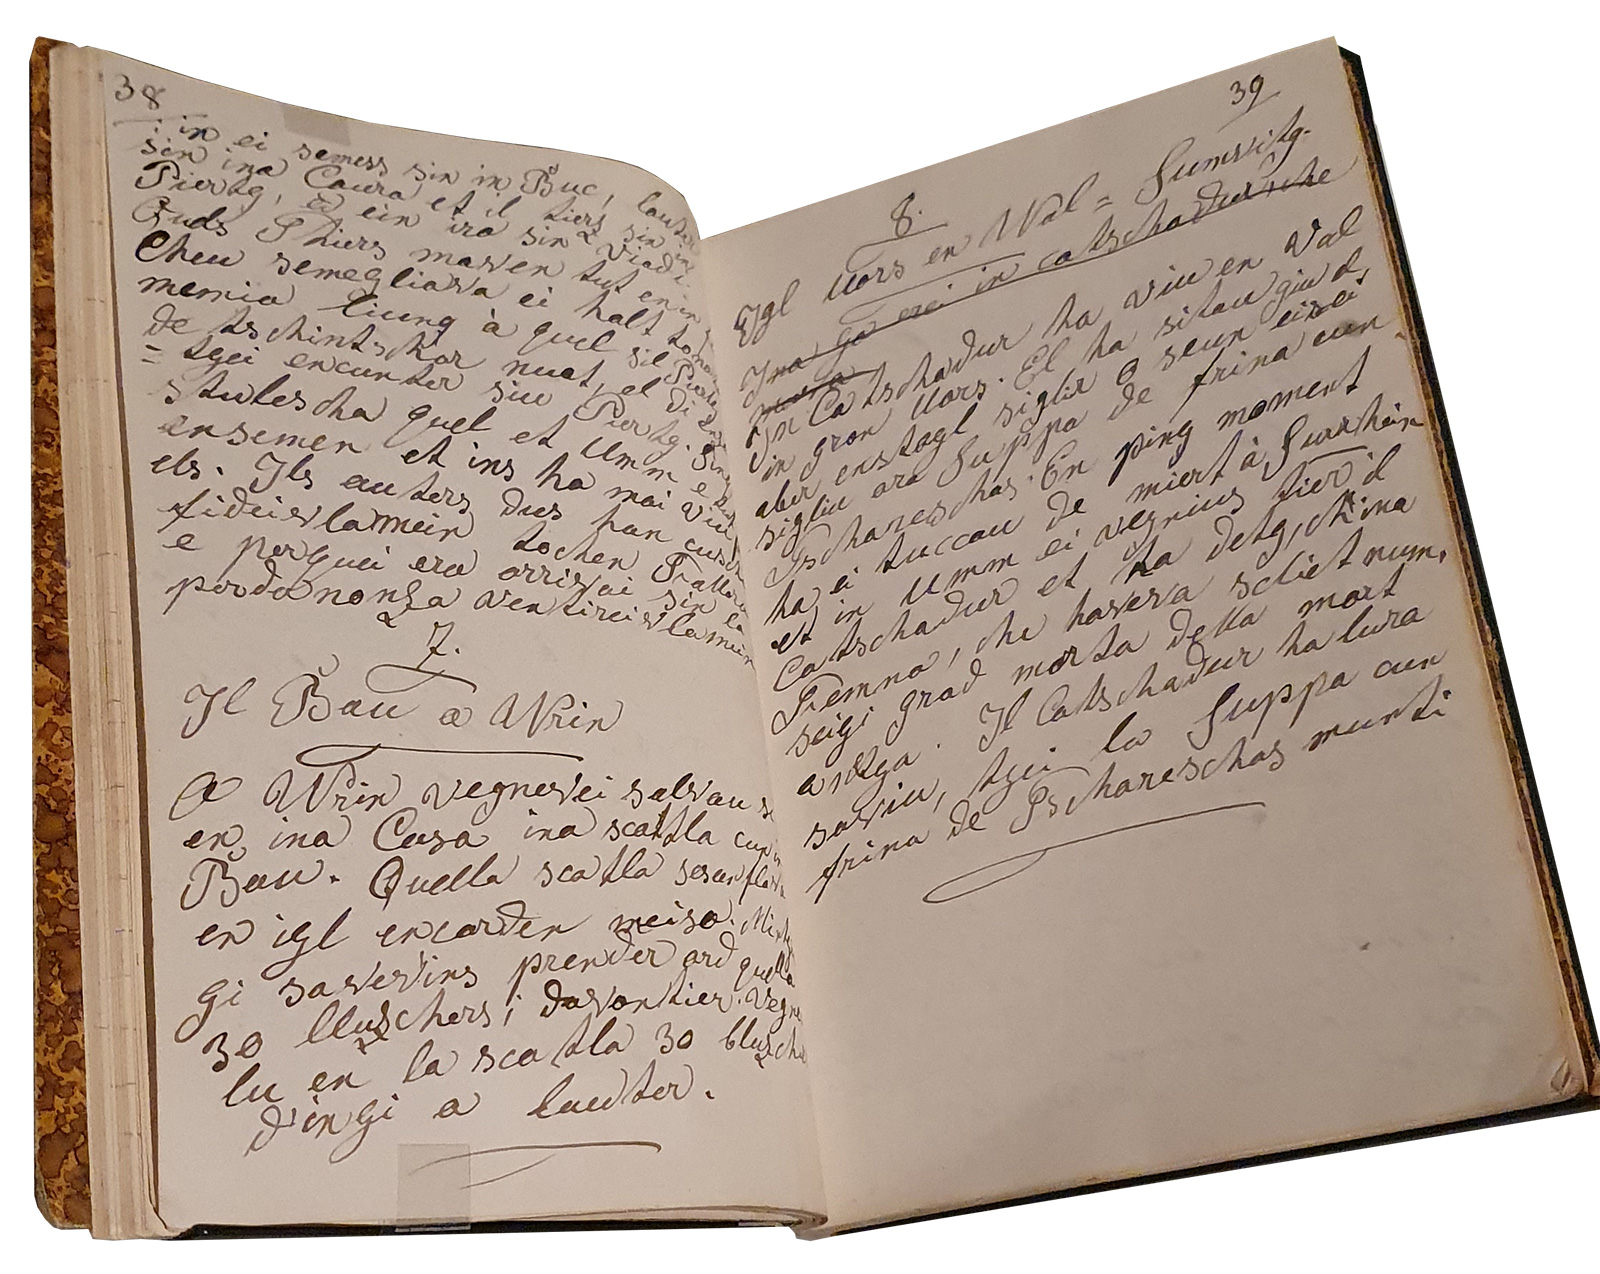 38
in ei semess sin in Buc, l'auter
sin ina Caura et il tiers sin in
Piertg, a ein ira sin viadi.
Quds Thiers maven tut en in
Cheu semegliava ei halt to
memia liung à quel sil Piertg
de tschintschar nuot, el di
= tgei encunter siu Piertg.
stulescha quel et Umm e
ensemen et ins ha mai viu
els. Ils auters dus han cus
fideivlamein tochen
e perquei era arrivai sin la
pardanonza ventireivlamein
7.
Il Bau a Wrin
A Wrin vegnevei salvau
en ina Casa ina scatla cun in
Bau. Quella scatla sesanflava
en igl encarden meisa. Mintg
gi savevins prender ord quella
30 bluschers; davontier vegne
lu en la scatla 30 blusch
d'ingi a lauter.
39
8.
Igl Uors en Wal = Sumvitg.
Ina ga erei in catschadur che
mava
In Catschadur ha viu en Val
in gron Uors. El ha sitau giu d,
aber enstagl siglir o seun eis ei
sigliu ora Suppa de frina cun
Tschareschas. En ping moment
ha ei tuccau de miert à Surrhein
et in Umm ei vegnius tier il
Catschadur et ha detg, ch'ina
Femna, che haveva schiet num,
seigi grad morta della mort
anetga. Il Catschadur ha lura
saviu, tgei la Suppa cun
frina de Tschareschas munti